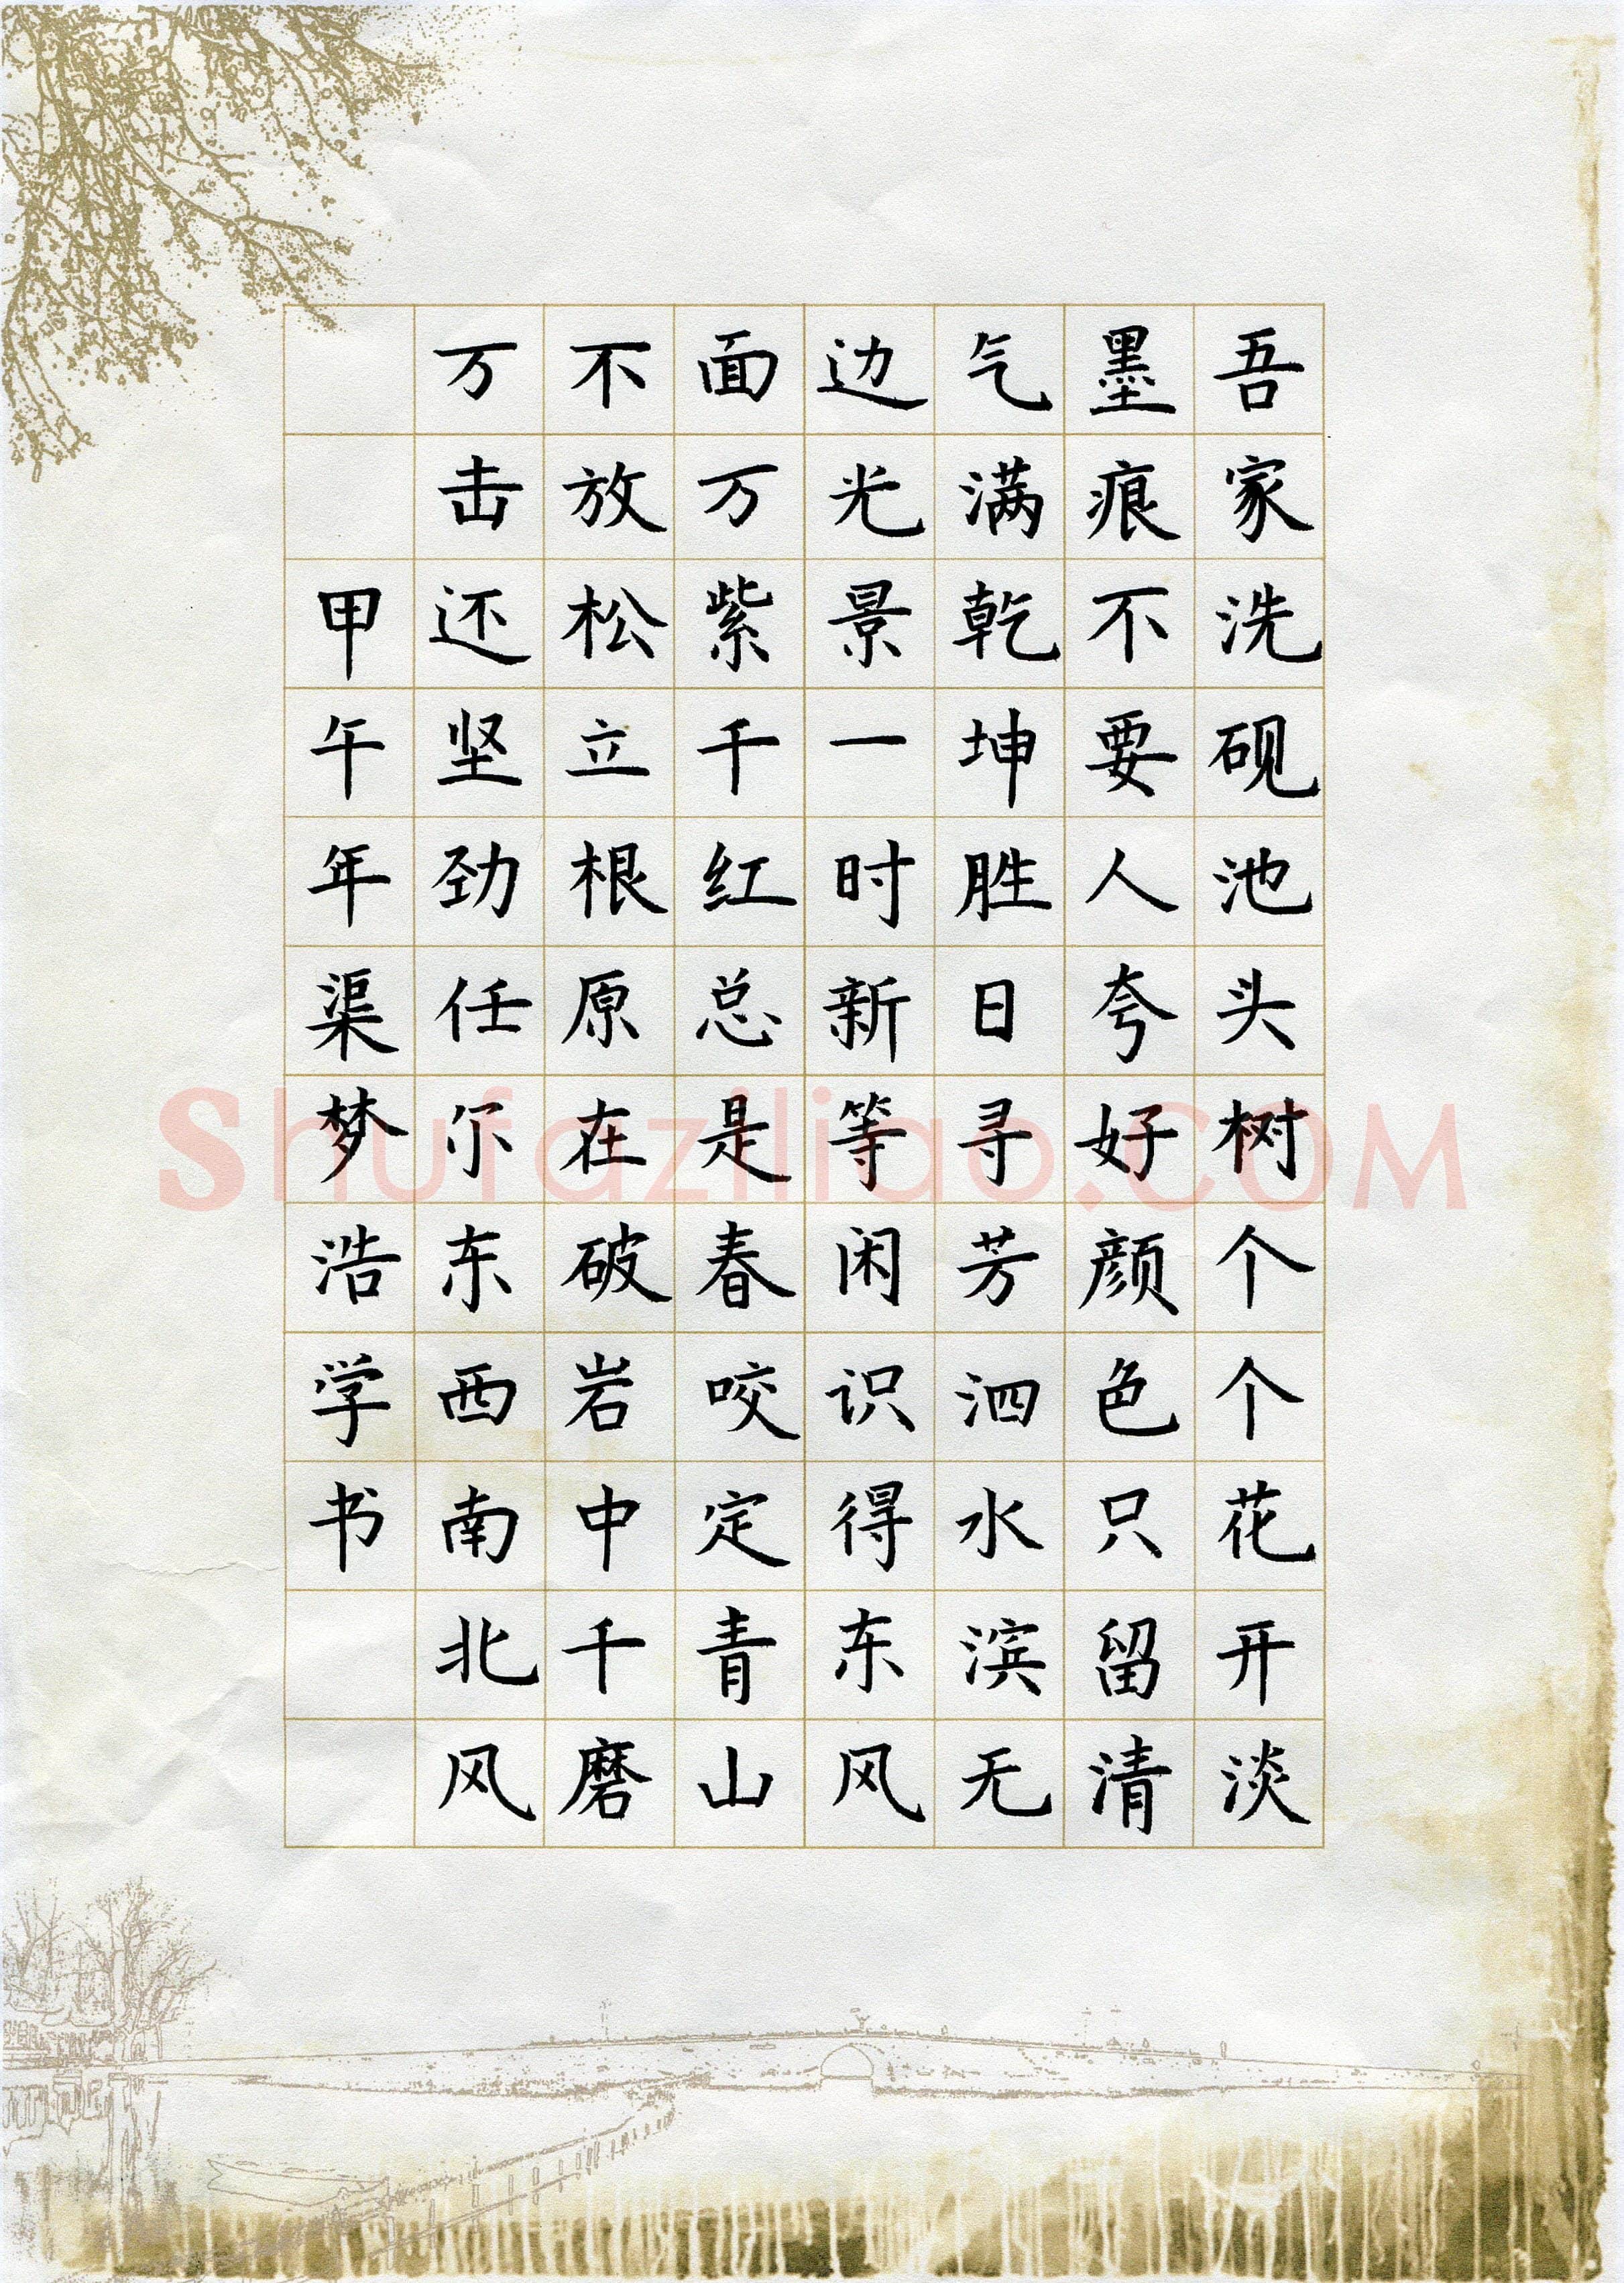 吾家洗砚池头树个个花开淡
墨痕不要人夸好颜色只留清
气满乾坤胜日寻芳泗水滨无
边光景一时新等闲识得东风
面万紫千红总是春咬定青山
不放松立根原在破岩中千磨
万击还坚劲任尔东西南北风
甲午年渠梦浩学书
Shufaziliao.COM